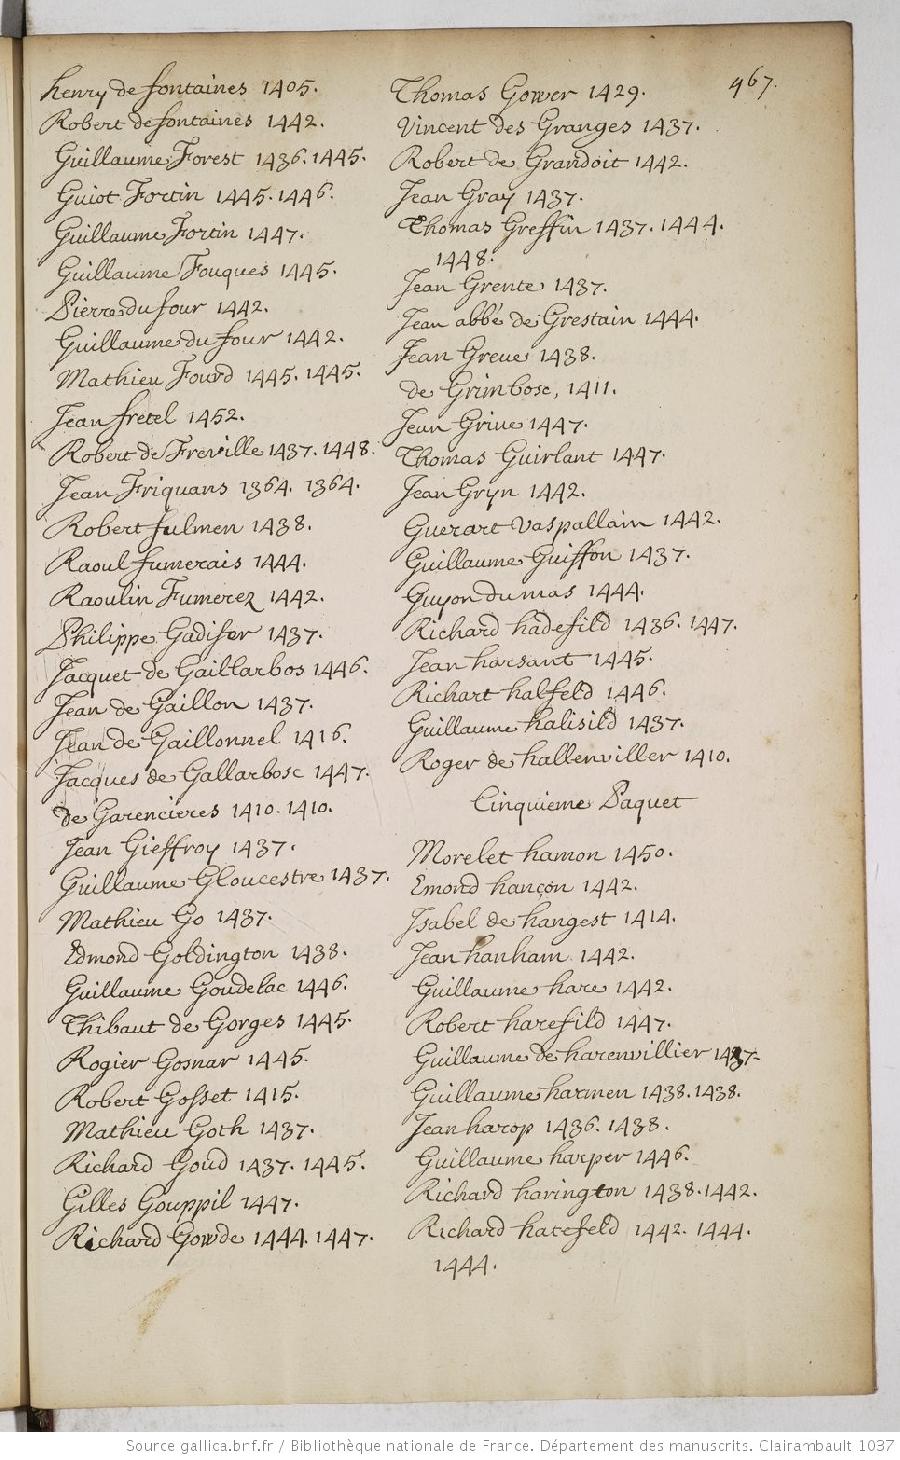 967.
henry de fontaines 1405.
Robert de fontaines 1442.
Guillaume Forest 1436. 1445.
Guiot Fortin 1445. 1446.
Guillaume Fortin 1447.
Guillaume Fouques 1445.
Pierre du four 1442.
Guillaume du four 1442.
Mathieu Fourd 1445. 1445.
Jean fretel 1452.
Robert de Freville 1437. 1448.
Jean Friquans 1364. 1364.
Robert fulmen 1438.
Raoul fumerais 1444.
Raoulin Fumerez 1442.
Philippe Gadifer 1437.
Jacquet de Gaillarbos 1446.
Jean de Gaillon 1437.
Jean de Gaillonnel 1416.
Jacques de Gallarbosc 1447.
de Garencieres 1410. 1410.
Jean Gieffroy 1437.
Guillaume Gloucestre 1437.
Mathieu Go 1437.
Edmond Goldington 1438.
Guillaume Goudelac 1446.
Thibaut de Gorges 1445.
Rogier Gosnar 1445.
Robert Gosset 1415.
Mathieu Goth 1437.
Richard Goud 1437. 1445.
Gilles Gouppil 1447.
Richard Gowde 1444. 1447.
Thomas Gower 1429.
Vincent des Granges 1437.
Robert de Grandoit 1442.
Jean Gray 1437.
Thomas Greffin 1437. 1444.
1448.
Jean Grente 1437.
Jean abbé de Grestain 1444.
Jean Greue 1438.
de Grimbosc, 1411.
Jean Griue 1447.
Thomas Guirlant 1447.
Jean Gryn 1442.
Guerart Vaspallain 1442.
Guillaume Guiffon 1437.
Guyon du mas 1444.
Richard hadefild 1436. 1447.
Jean harsant 1445.
Richart halfeld 1446.
Guillaume halisild 1437.
Roger de hallenviller 1410.
Cinquieme Paquet
Morelet hamon 1450.
Emond hançon 1442.
Isabel de hangest 1414.
Jean hanham 1442.
Guillaume hare 1442.
Robert harefild 1447.
Guillaume de harenvillier 1437.
Guillaume harmen 1438. 1438.
Jean harop 1436. 1438.
Guillaume harper 1446.
Richard harington 1438. 1442.
Richard hatefeld 1442. 1444.
1444.
Source gallica.bnf.fr / Bibliothèque nationale de France. Département des manuscrits. Clairambault 1037